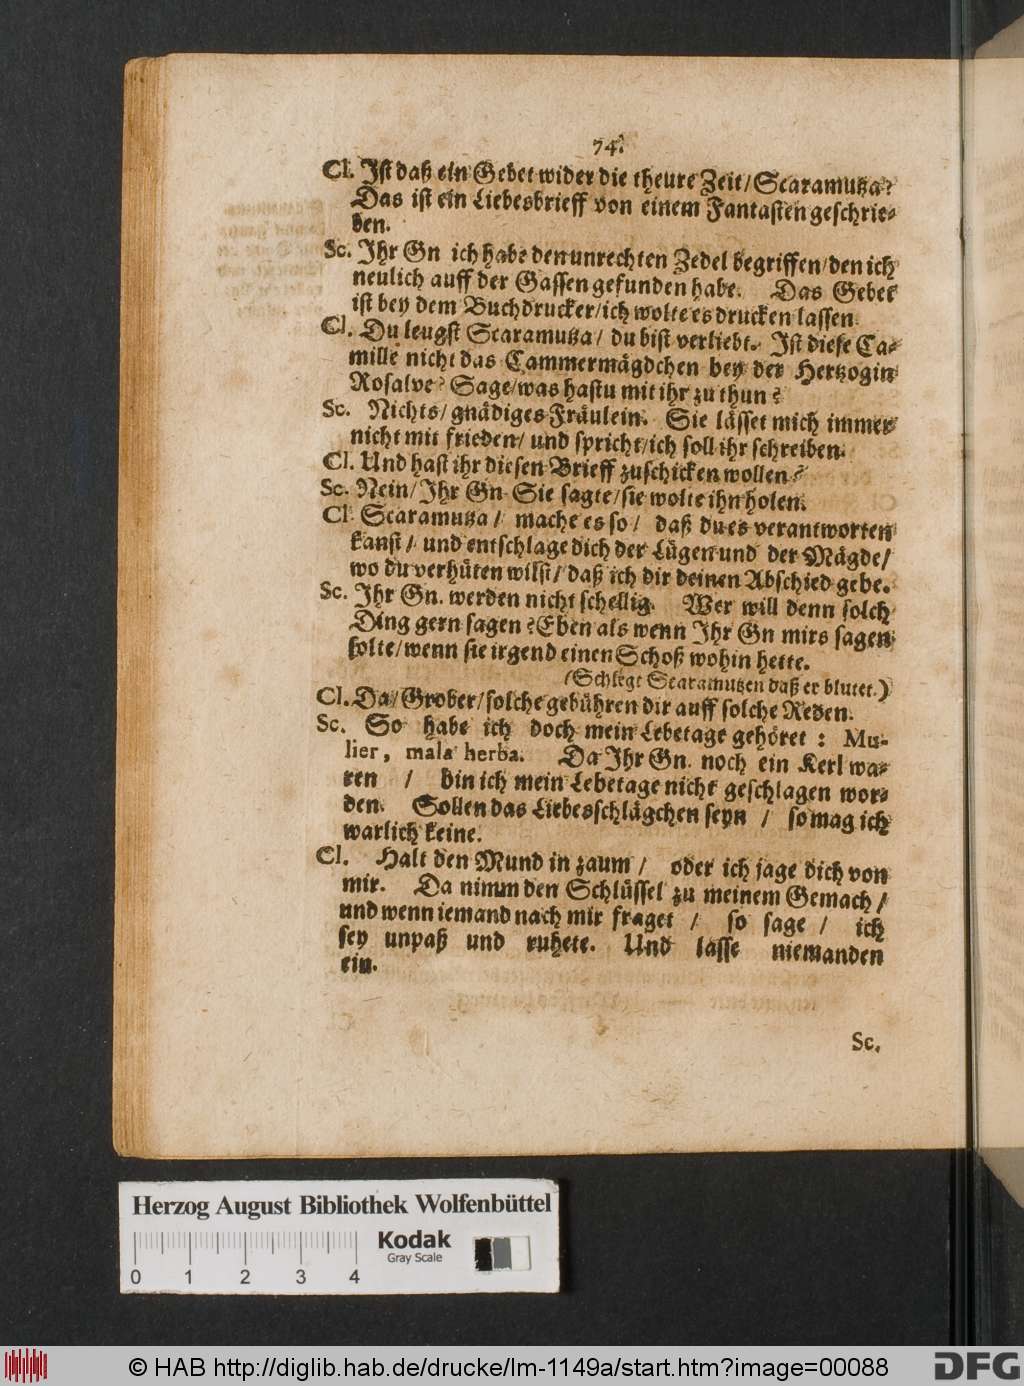 74.
Cl. Ist daß ein Gebet wider die theure Zeit/ Scaramutza?
Das ist ein Liebesbrieff von einem Fantasten geschrie-
ben.
Sc. Ihr Gn ich habe den unrechten Zedel begriffen/ den ich
neulich auff der Gassen gefunden habe. Das Gebet
ist bey dem Buchdrucker/ ich wolte es drucken lassen.
Cl. Du leugst Scaramutza/ du bist verliebt. Ist diese Ca-
mille nicht das Cammermägdchen bey der Hertzogin
Rosalve? Sage/ was hastu mit ihr zu thun?
Sc. Nichts/ gnädiges Fräulein. Sie lässet mich immer
nicht mit frieden/ und spricht/ ich soll ihr schreiben.
Cl. Und hast ihr diesen Brieff zuschicken wollen?
Sc. Nein/ Ihr Gn Sie sagte/ sie wolte ihn holen.
Cl Scaramutza/ mache es so/ daß du es verantworten
kanst/ und entschlage dich der Lügen und der Mägde/
wo du verhüten wilst/ daß ich dir deinen Abschied gebe.
Sc. Ihr Gn. werden nicht schellig. Wer will denn solch
Ding gern sagen? Eben als wenn Ihr Gn mirs sagen
solte/ wenn sie irgend einen Schoß wohin hette.
(Schlegt Scaramutzen daß er blutet.)
Cl. Da/ Grober/ solche gebühren dir auff solche Reden.
Sc. So habe ich doch mein Lebetage gehöret: Mu-
lier, mala herba. Da Ihr Gn. noch ein Kerl wa-
ren / bin ich mein Lebetage nicht geschlagen wor-
den. Sollen das Liebesschlägchen seyn / so mag ich
warlich keine.
Cl. Halt den Mund in zaum / oder ich jage dich von
mir. Da nimm den Schlüssel zu meinem Gemach /
und wenn iemand nach mir fraget / so sage / ich
sey unpaß und ruhete. Und lasse niemanden
ein.
Sc.
Herzog August Bibliothek Wolfenbüttel
Kodak
Gray Scale
0 1 2 3 4
© HAB http://diglib.hab.de/drucke/lm-1149a/start.htm?image=00088
DFG